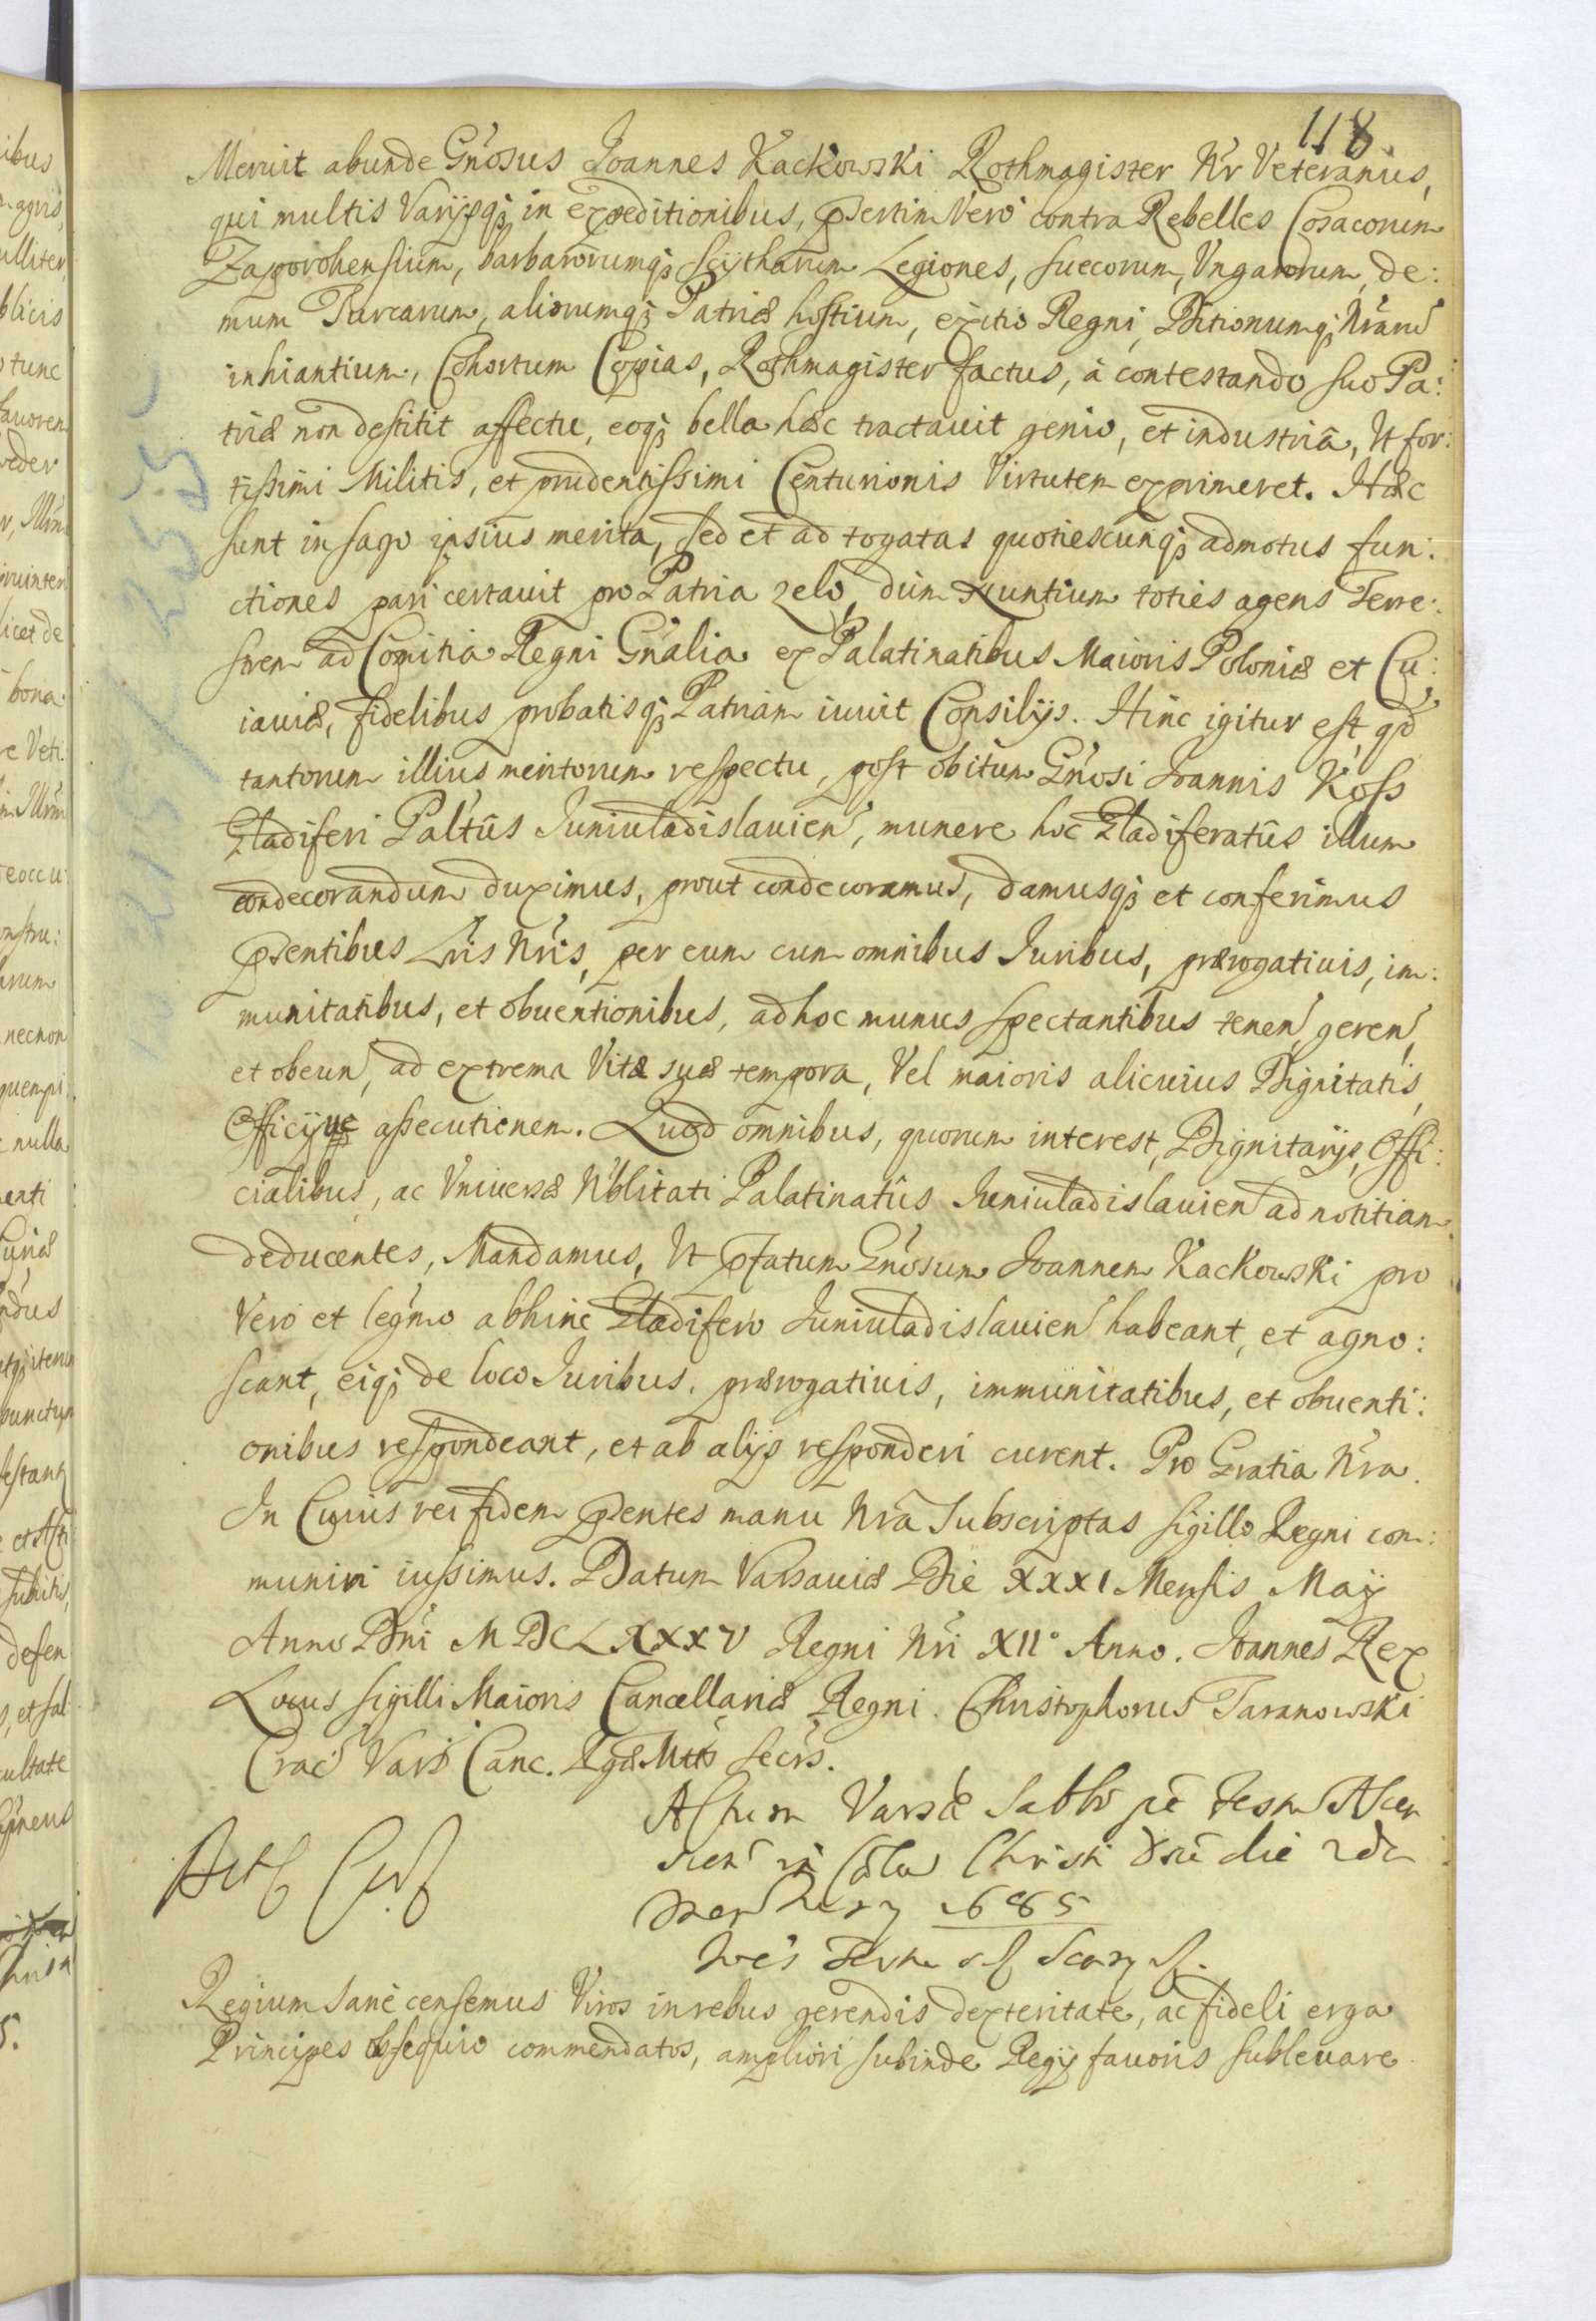 118
Meruit abunde Gn̄osus Joannes Kackowski Rothmagister Nr̄ Veteranus,
qui multis Varijsqꝫ in expeditionibus, p̄sertim Vero contra Rebelles Cosacorum
Zaporohensium, barbarorumqꝫ Scytharum Legiones, Suecorum, Vngarorum, de:
mum Turcarum, aliorumqꝫ Patriæ hostium, exitio Regni, Ditionumqꝫ Nr̄aru̅
inhiantium, Cohortum Copias, Rothmagister factus, à contestando suo Pa:
triæ non destitit affectu, eoqꝫ bella hæc tractauit genio, et industriâ, Ut for:
tissimi Militis, et prudentissimi Centurionis Virtutem exprimeret. Hæc
sunt in sago ipsius merita, sed et ad togatas quotiescunqꝫ admotus fun:
ctiones pari certauit pro Patria zelo, dum Nuntium toties agens Terre:
strem ad Comitia Regni Gn̄alia ex Palatinatibus Maioris Poloniæ et Cu:
iauiæ, fidelibus probatisqꝫ Patriam iuuit Consilijs. Hinc igitur est, qd̄
tantorum illius meritorum respectu, post obitum Gn̄osi Joannis Koss
Gladiferi Paltūs Juniuladislauien̄, munere hoc Gladiferatûs illum
condecorandum duximus, prout condecoramus, damusqꝫ et conferimus
p̄sentibus Lr̄is Nr̄is, per eum cum omnibus Juribus, prærogatiuis, im:
munitatibus, et obuentionibus, ad hoc munus spectantibus tenen̄, geren̄,
et obeun̄, ad extrema Vitæ suæ tempora, Vel maioris alicuius Dignitatis,
Officijue assecutionem. Quod omnibus, quorum interest, Dignitarijs, Offi:
cialibus, ac Vniuersæ Nb̄litati Palatinatûs Juniuladislauien̄ ad notitiam
deducentes, Mandamus, Ut p̄fatum Gn̄osum Joannem Kackowski pro
Vero et legmo abhinc Gladifero Juniuladislauien̄ habeant, et agno:
scant, eiqꝫ de loco Juribus, prærogatiuis, immunitatibus, et obuenti:
onibus respondeant, et ab alijs responderi curent. Pro Gratia Nr̄a.
In Cuius rei fidem p̄sentes manu Nr̄a Subscriptas Sigillo Regni com:
muniri iussimus. Datum Varsauiæ Die XXXI Mensis Maij
Anno Dn̄i MDCLXXXV Regni Nr̄i XII° Anno. Joannes Rex
Locus Sigilli Maioris Cancellariæ Regni. Christophorus Taranowski
Crac̄ Vars̄ Canc. RgæMttis Secrs̄.
Actum Varsæ Sabbo Festum Ascen
in Cælum Christi die 2da
1685
Regium sanè censemus Viros in rebus gerendis dexteritate, ac fideli erga
Principes obsequio commendatos, ampliori subinde Regij fauoris subleuare